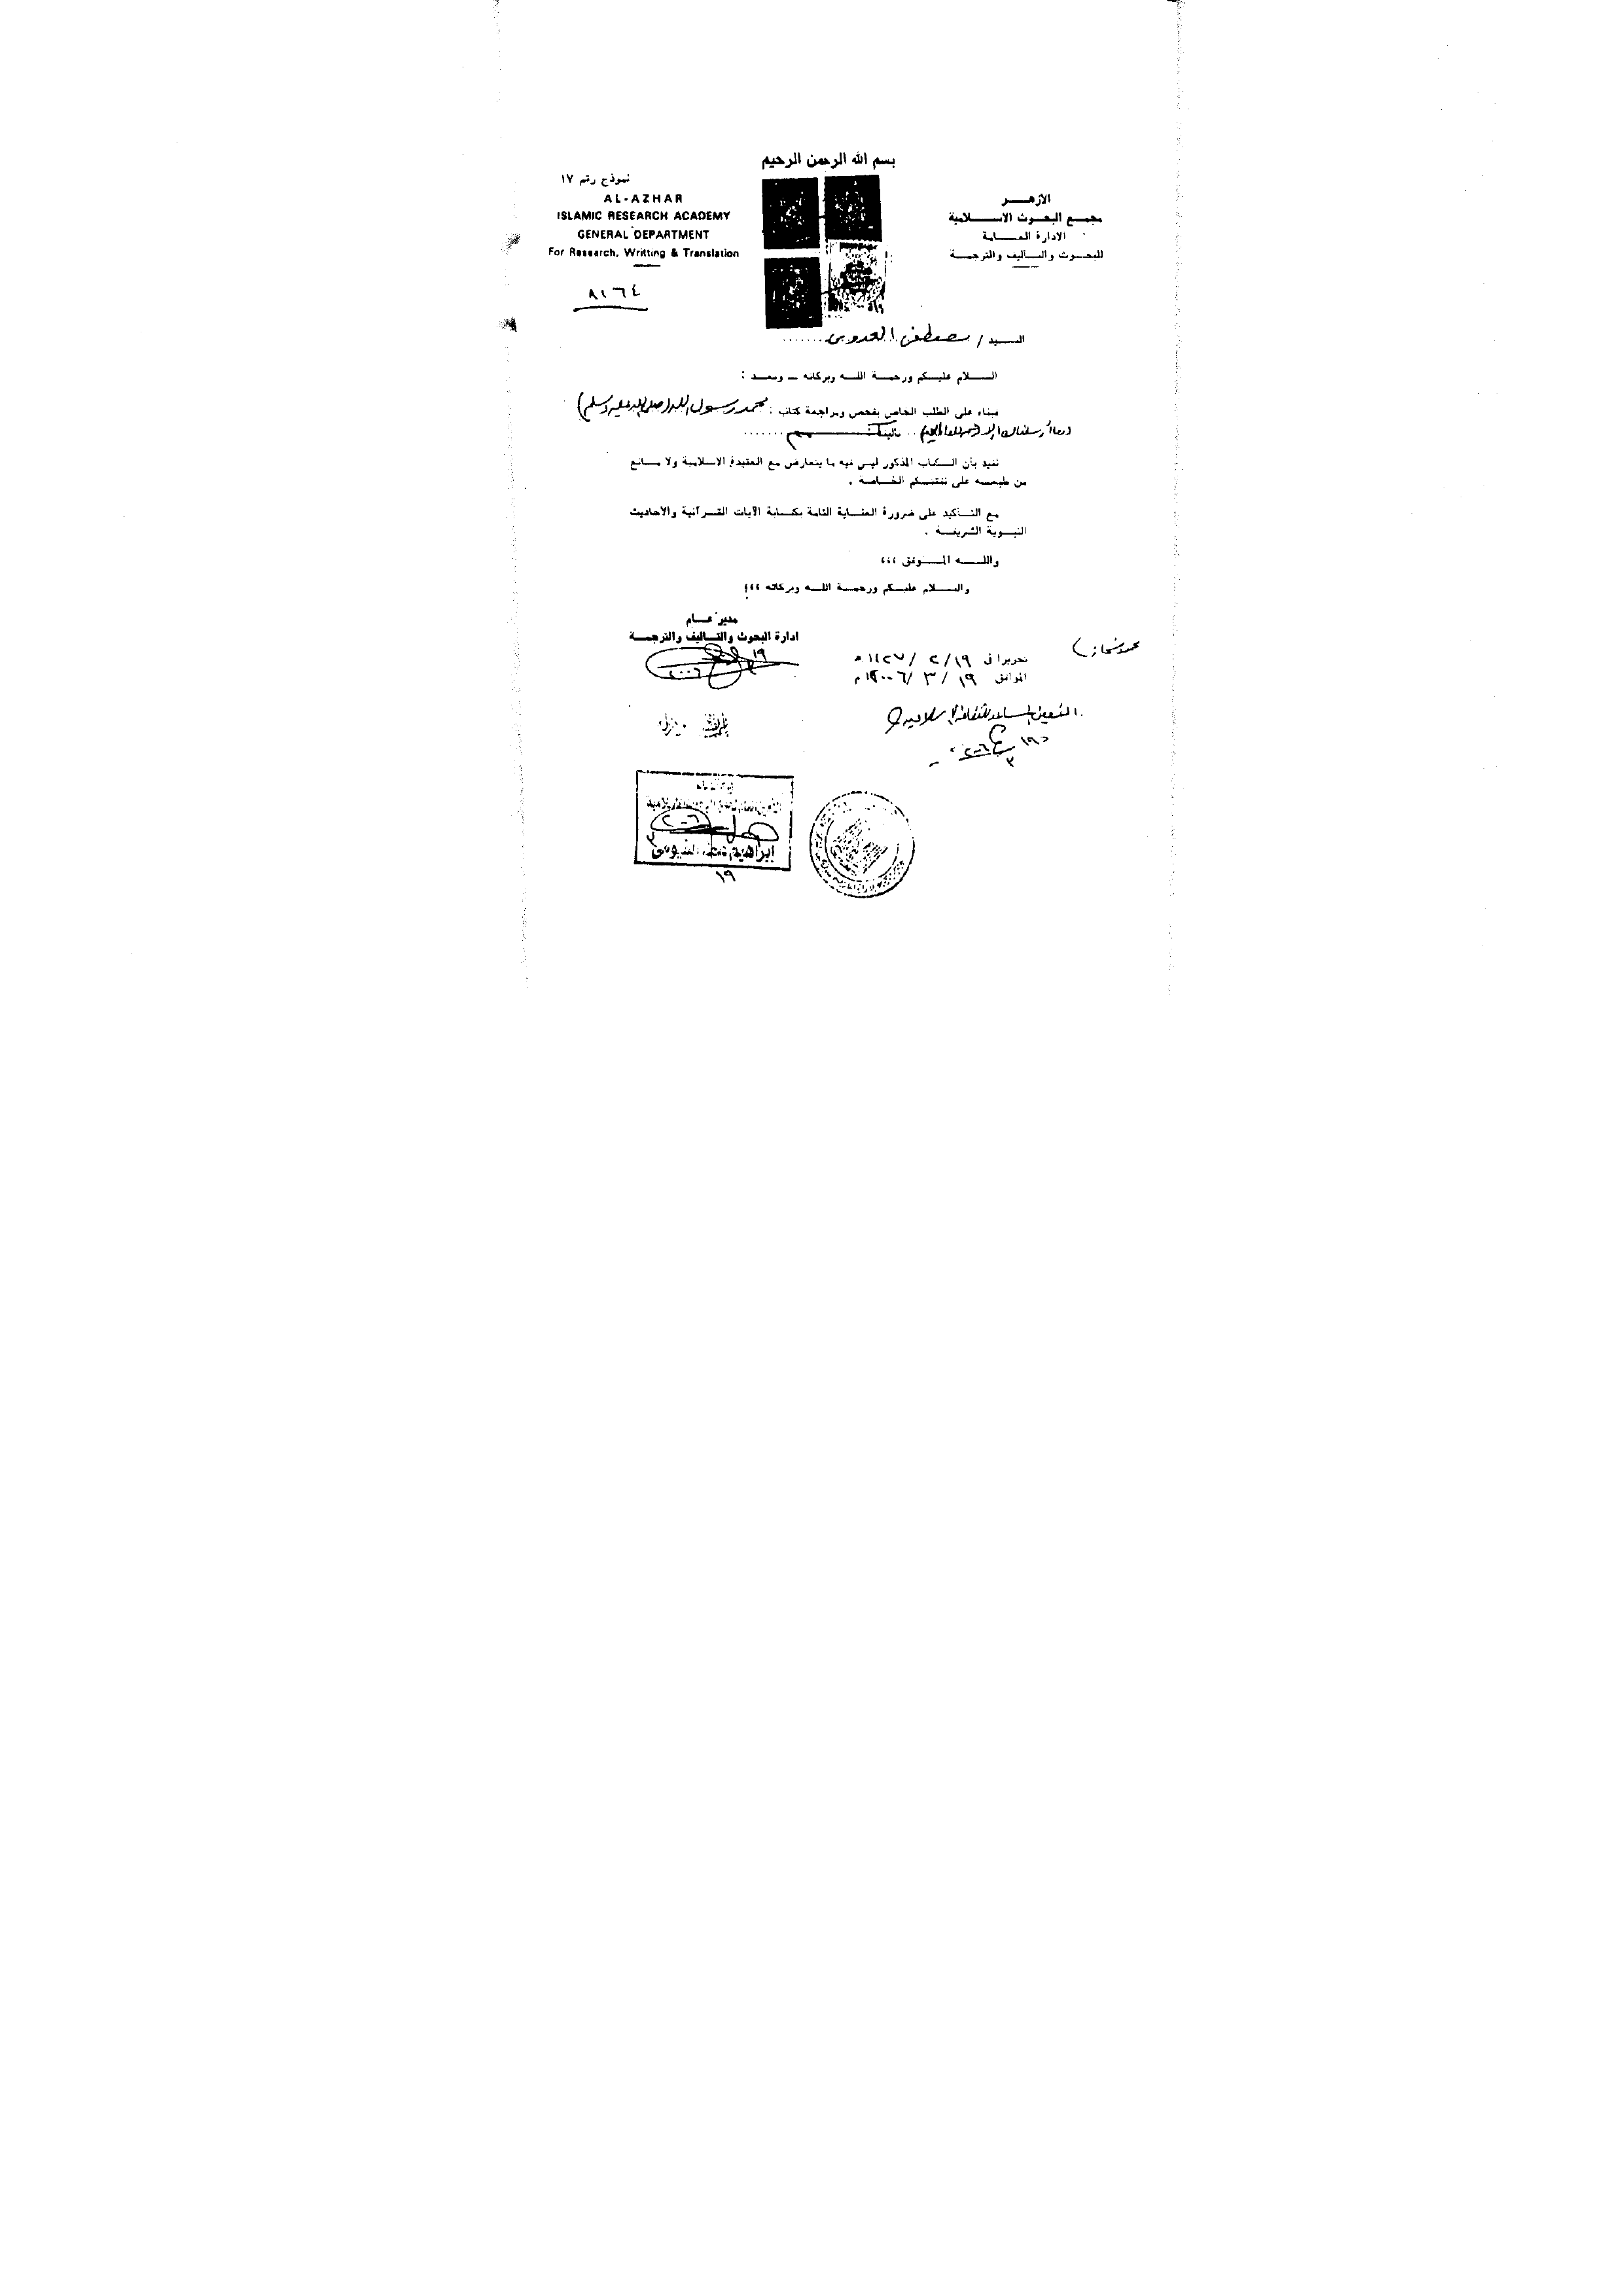 بسم الله الرحمن الرحيم
الأزهـــر
مجمـع البحـوث الاسـلامية
الادارة العـامة
للبحـوث والتـأليف والترجمـة
نموذج رقم ١٧
AL-AZHAR
ISLAMIC RESEARCH ACADEMY
GENERAL DEPARTMENT
For Research, Writting & Translation
٨١٦٤
السـيد / مصطفى العدوى
السـلام عليـكم ورحمـة اللـه وبركاته ـ وبعـد :
فبناء على الطلب الخاص بفحص ومراجعة كتاب : محمد رسول الله (صلى الله عليه وسلم)
وما أرسلناك إلا رحمة للعالمين تأليف
نفيد بأن الـكتاب المذكور ليس فيه ما يتعارض مع العقيدة الاسـلامية ولا مـانع
من طبعـه على نفقتـكم الخـاصة .
مع التـأكيد على ضرورة العنـاية التامة بكتـابة الآيات القـرآنية والأحاديث
النبـوية الشريفـة .
واللـــه المـــوفق ،،،
والسـلام عليـكم ورحمـة اللـه وبركاته ،،،
مدير عـام
ادارة البحوث والتـأليف والترجمـة
تحريرا فى ١٩ / ٢ / ١٤٢٧ هـ
الموافق ١٩ / ٣ / ٢٠٠٦ م
١٩
٢٠٠٦
٢٠٠٦
ابراهيم
١٩